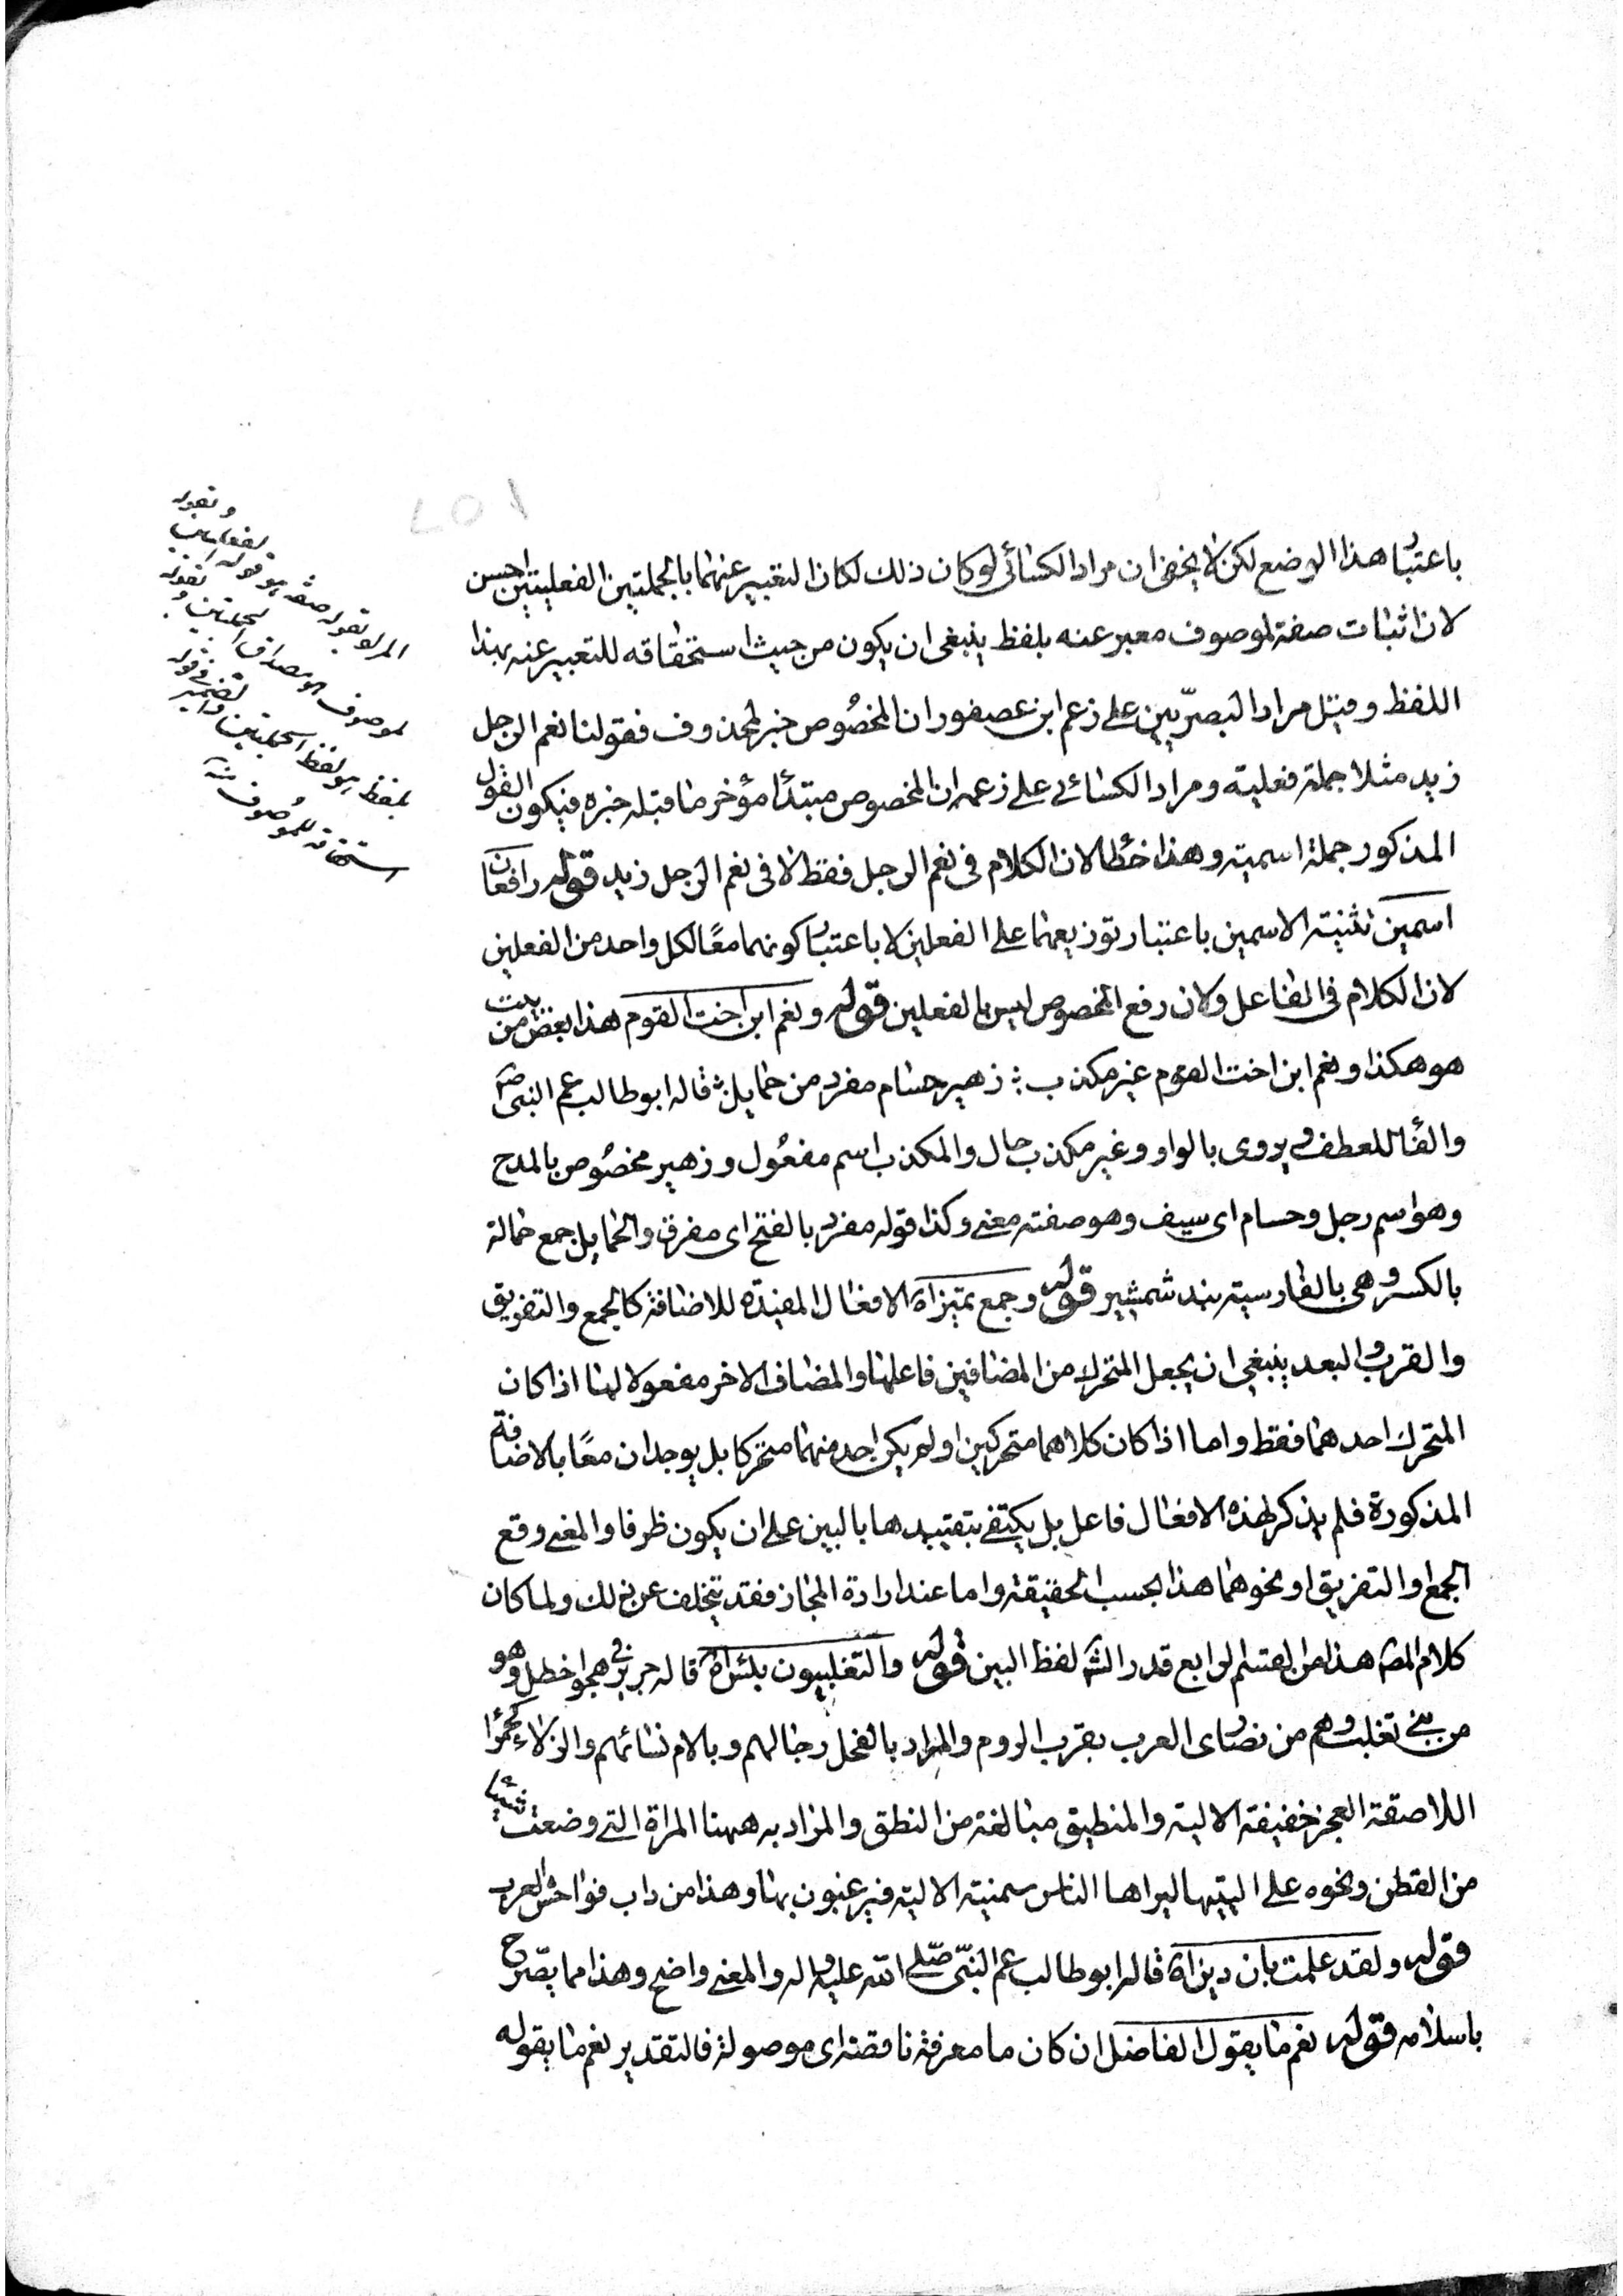 باعتبار هذا الوضع لكن لا يخفى ان مراد الكسائى لو كان ذلك لكان التعبير عنهما بالجملتين الفعليتين احسن
لان اثبات صفة لموصوف معبر عنه بلفظ ينبغى ان يكون من حيث استحقاقه للتعبير عنه بهذا
اللفظ وقيل مراد البصريين على زعم ابن عصفور ان المخصوص خبر لمحذوف فقولنا نعم الرجل
زيد مثلا جملة فعلية ومراد الكسائى على زعمه ان المخصوص مبتدأ مؤخر ما قبله خبره فيكون القول
المذكور جملة اسمية وهذا خطأ لان الكلام فى نعم الرجل فقط لا فى نعم الرجل زيد قوله رافعان
اسمين تثنية الاسمين باعتبار توزيعهما على الفعلين لا باعتبار كونهما معًا لكل واحد من الفعلين
لان الكلام فى الفاعل ولان رفع المخصوص ليس بالفعلين قوله ونعم ابن اخت القوم هذا بعض من بيت
هو هكذا ونعم ابن اخت القوم غير مكذب ؛ زهير حسام مفرد من حمايل ؛ قاله ابو طالب عم النبى ص
والفاء للعطف ويروى بالواو وغير مكذب حال والمكذب اسم مفعول وزهير مخصوص بالمدح
وهو اسم رجل وحسام اى سيف وهو صفته معنى وكذا قوله مفرد بالفتح اى مفرق والحمايل جمع حمالة
بالكسر وهى بالفارسية بند شمشير قوله وجمع تميز اه الافعال المفيدة للاضافة كالجمع والتفريق
والقرب والبعد ينبغى ان يجعل المتحرك من المضافين فاعلها والمضاف الاخر مفعولا لها اذا كان
المتحرك احدهما فقط واما اذا كان كلاهما متحركين او لم يكن احد منهما متحركا بل يوجدان معًا بالاضافة
المذكورة فلم يذكر لهذه الافعال فاعل بل يكتفى بتقييدها بالبين على ان يكون ظرفا والمعنى وقع
الجمع او التفريق او نحوهما هذا بحسب الحقيقة واما عند ارادة المجاز فقد يتخلف عن ذلك ولما كان
كلام المص هذا من القسم الرابع قدر الش لفظ البين قوله والتغلبيون بئس اه قاله جرير فى هجو اخطل وهو
من بنى تغلب وهم من نصارى العرب بقرب الروم والمراد بالفحل رجالهم وبالام نسائهم والزلاء كحمراء
اللاصقة العجز خفيفة الالية والمنطيق مبالغة من النطق والمراد به ههنا المراة التى وضعت شيئا
من القطن ونحوه على اليتيها ليراها الناس سمينة الالية فيرغبون بها وهذا من داب فواحش العرب
قوله ولقد علمت بان دين اه قاله ابو طالب عم النبى صلى الله عليه واله والمعنى واضح وهذا مما يصرح
باسلامه قوله نعم ما يقول الفاضل ان كان ما معرفة ناقصة اى موصولة فالتقدير نعم ما يقوله